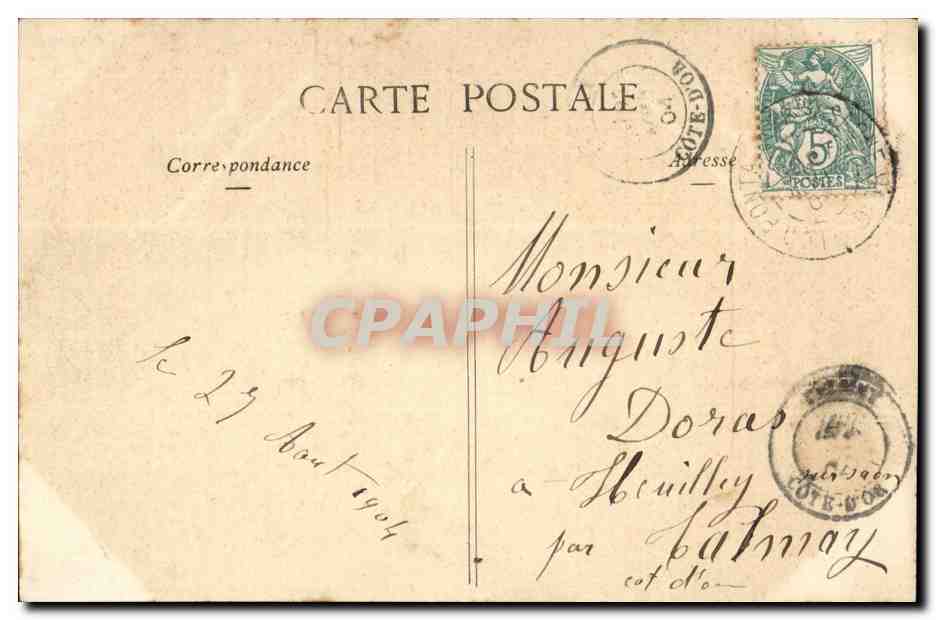 CARTE POSTALE
CÔTE-D'OR
04
5
POSTES
Correspondance
Adresse
Monsieur
CPAPHIL
Auguste
le 27 Aout 1904
Doras
à Heuilley sur Saon
CÔTE-D'OR
par Talmay
cot d'or